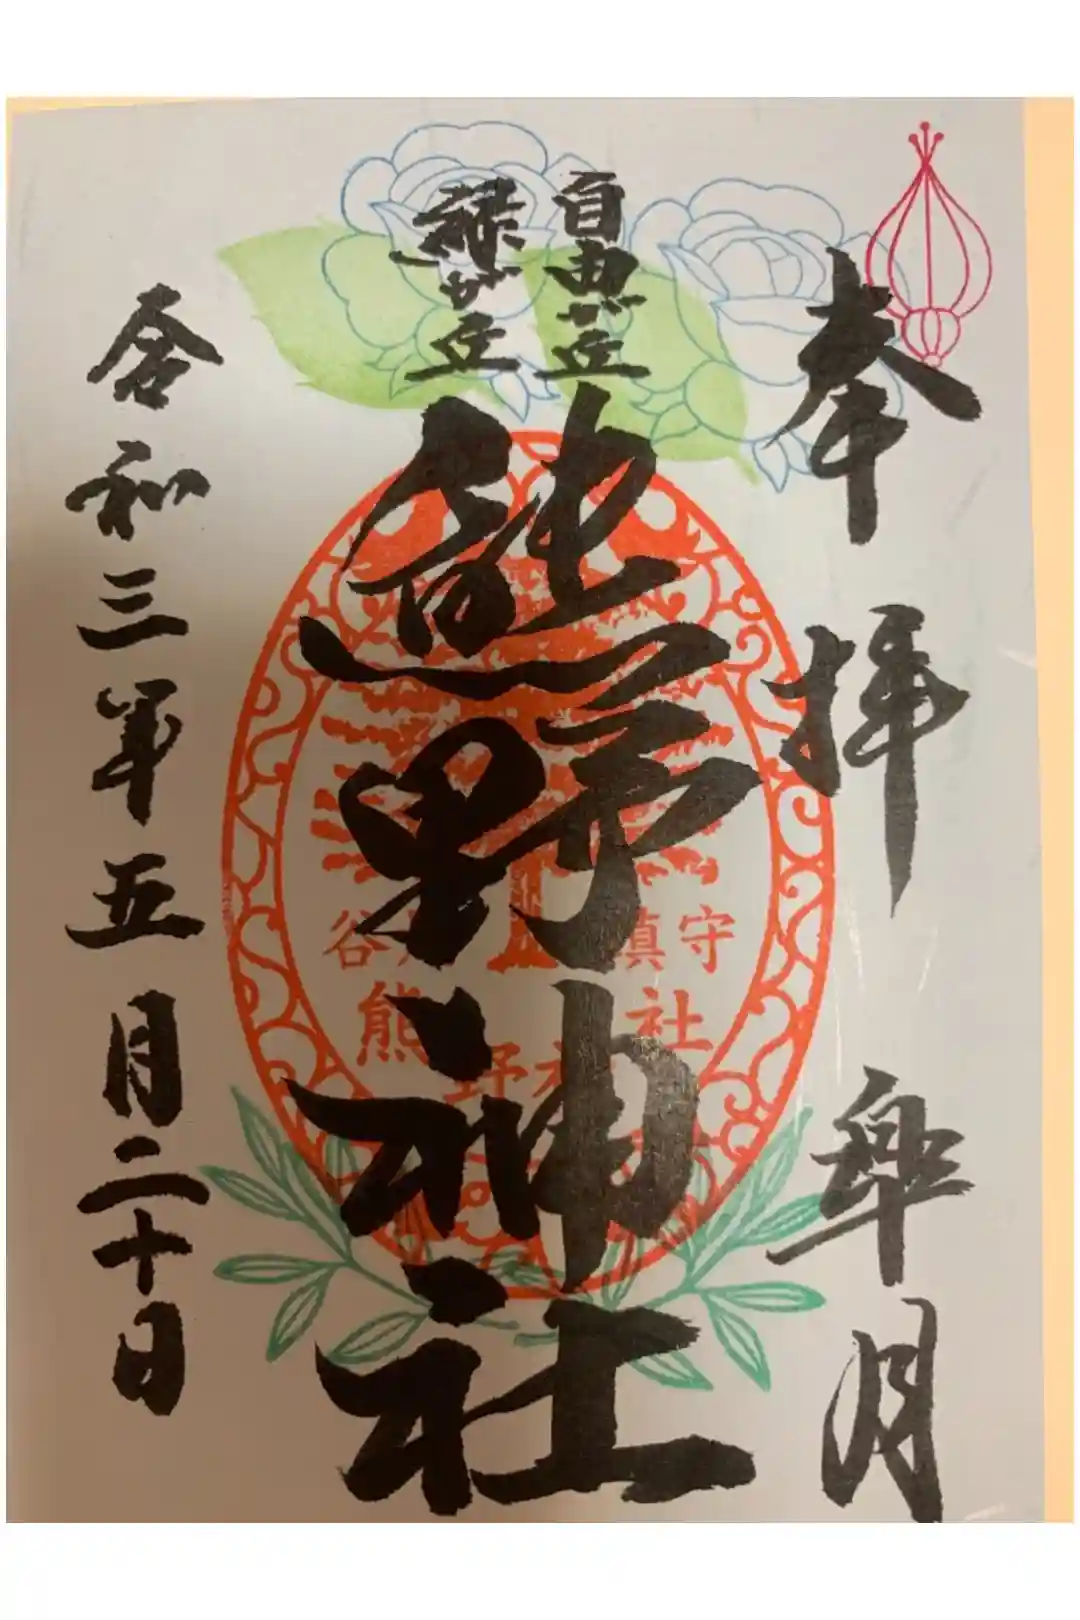 奉拝 皐月
自由が丘
緑が丘
熊野神社
谷
鎮守
熊野 社
令和三年五月二十日